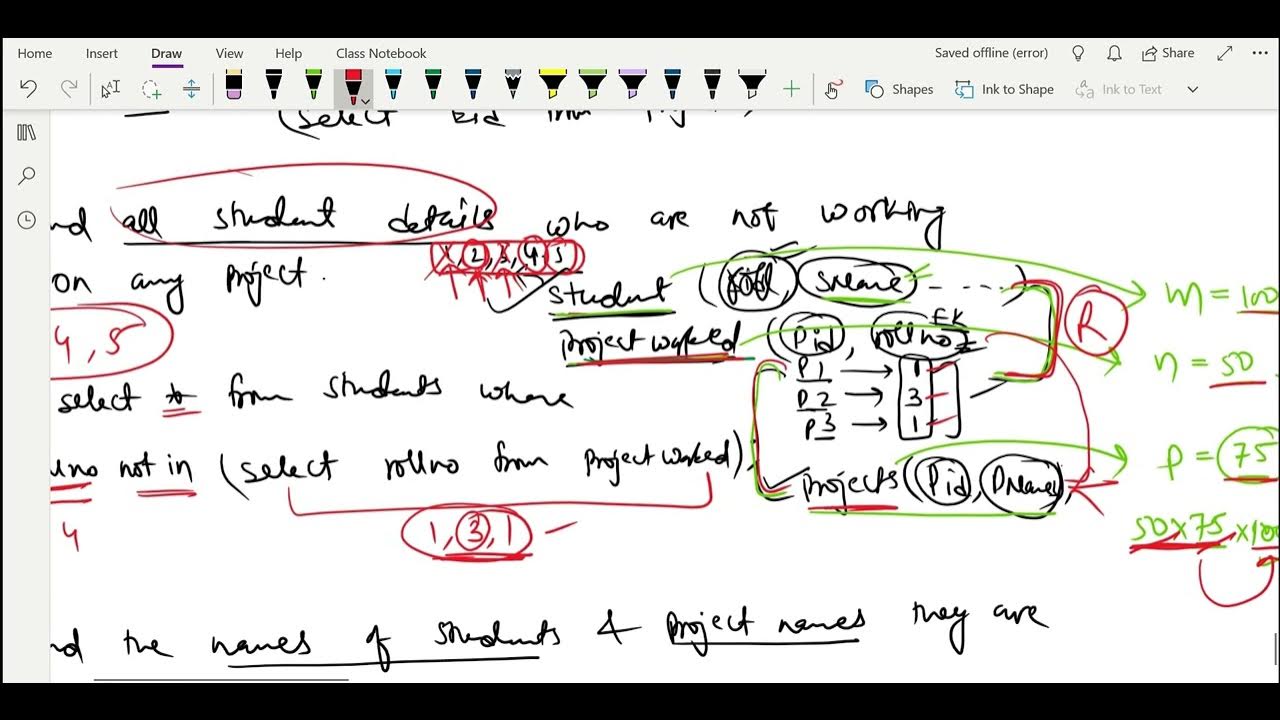 Home Insert Draw View Help Class Notebook Saved offline (error) Share
Shapes Ink to Shape Ink to Text
(select
nd all student details who are not working
on any project.
1, 2, 3, 4, 5
student ( sname - - - - )
m = 100
project worked (Pid, rollno
FK
R
4, 5
n = 50
P1 → 1
P2 → 3
P3 → 1
select * from students where
not in (select rollno from project worked);
P = 75
projects (Pid, Pname,
4
1, 3, 1
50x75x100
nd the names of students & project names they are